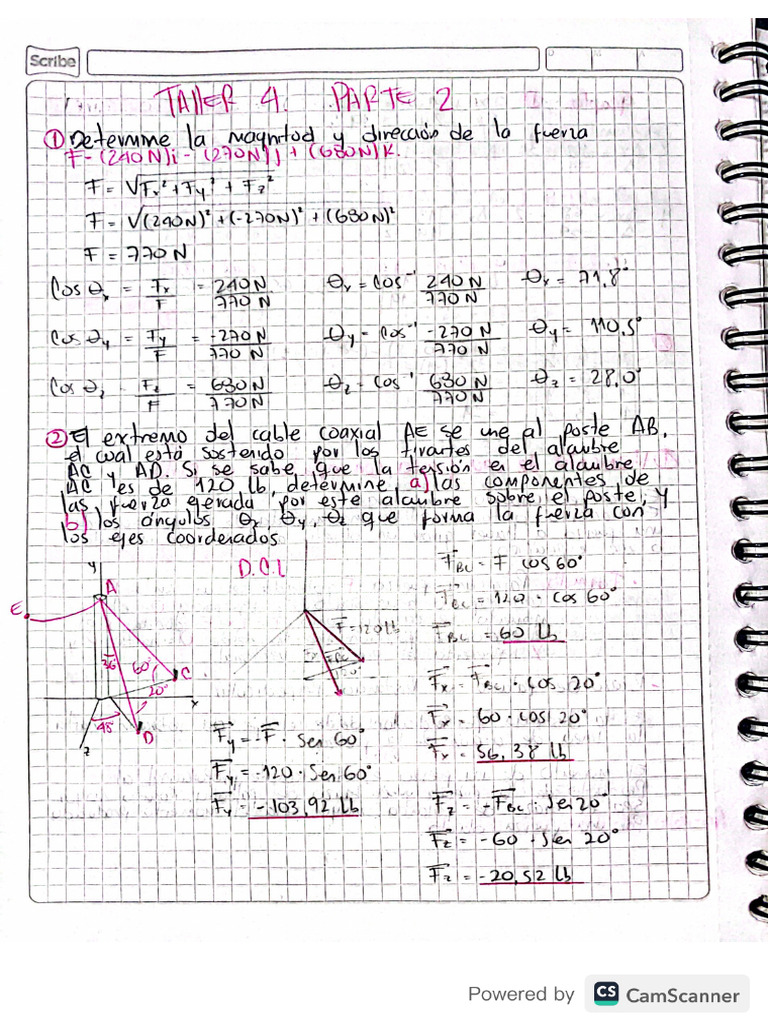 Scribe
TALLER 4. PARTE 2
① Determine la magnitod y dirección de la fuerza
F = (240N)i - (270N)j + (680N)k.
F = √Fx² + Fy² + Fz²
F = √(240N)² + (-270N)² + (680N)²
F = 770 N
Cos θx = Fx/F = 240 N/770 N θx = Cos⁻¹ 240 N/770 N θx = 71,8°
Cos θy = Fy/F = -270 N/770 N θy = Cos⁻¹ -270 N/770 N θy = 110,5°
Cos θz = Fz/F = 680 N/770 N θz = Cos⁻¹ 680 N/770 N θz = 28,0°
② El extremo del cable coaxial AE se une al poste AB,
el cual está sostenido por los tirantes del alambre
AC y AD. Si se sabe que la tensión en el alambre
AC es de 120 lb, determine a) las componentes de
las fuerza gerada por este alambre sobre el poste, y
b) los ángulos θx, θy, θz que forma la fuerza con
los ejes coordenados
y
A
E
36
60°
C
20°
x
45°
D
z
D.C.L
F=120lb
FBC = F cos 60°
FBC = 120 · cos 60°
FBC = 60 lb
Fx = FBC · Cos 20°
Fx = 60 · cos 20°
Fx = 56,38 lb
Fy = -F · Sen 60°
Fy = -120 · Sen 60°
Fy = -103,92 lb
Fz = -FBC · Sen 20°
Fz = -60 · Sen 20°
Fz = -20,52 lb
Powered by CS CamScanner